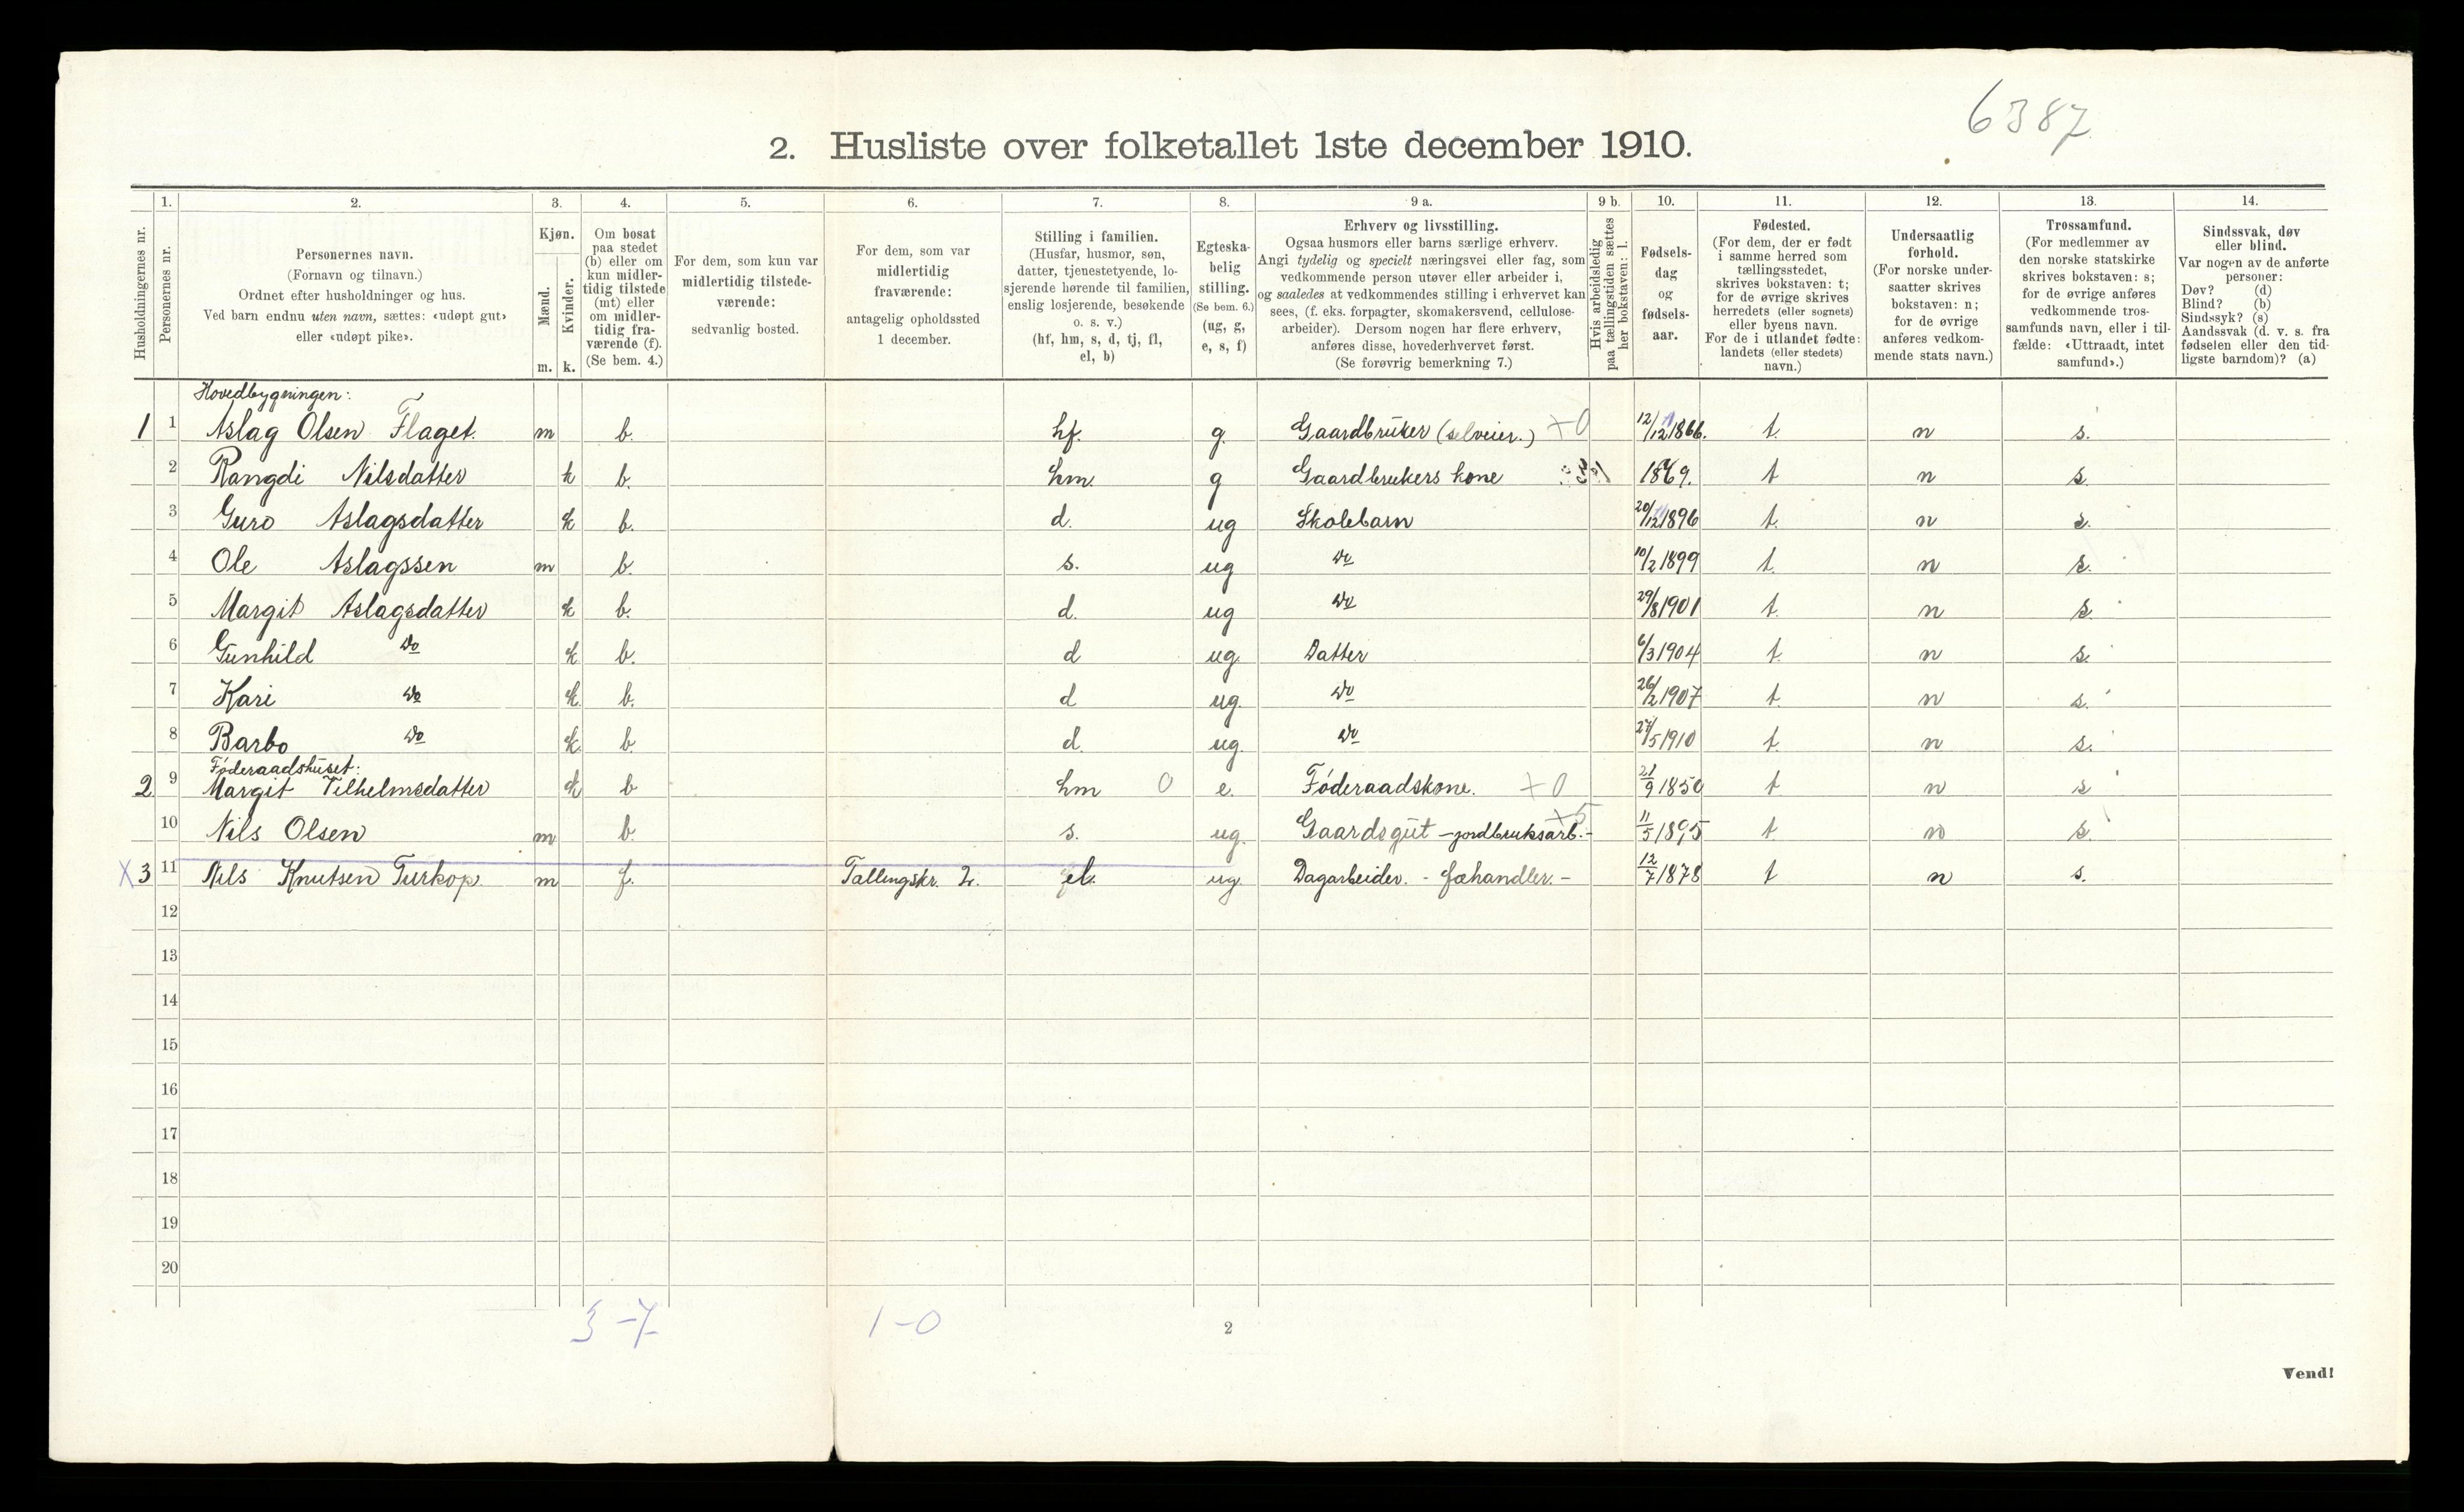 6387
2. Husliste over folketallet 1ste december 1910.
1. 2. 3. 4. 5. 6. 7. 8. 9 a. 9 b. 10. 11. 12. 13. 14.
Husholdningernes nr.
Personernes nr.
Personernes navn.
(Fornavn og tilnavn.)
Ordnet efter husholdninger og hus.
Ved barn endnu uten navn, sættes: «udøpt gut»
eller «udøpt pike».
Kjøn.
Mænd.
Kvinder.
m. k.
Om bosat
paa stedet
(b) eller om
kun midler-
tidig tilstede
(mt) eller
om midler-
tidig fra-
værende (f).
(Se bem. 4.)
For dem, som kun var
midlertidig tilstede-
værende:
sedvanlig bosted.
For dem, som var
midlertidig
fraværende:
antagelig opholdssted
1 december.
Stilling i familien.
(Husfar, husmor, søn,
datter, tjenestetyende, lo-
sjerende hørende til familien,
enslig losjerende, besøkende
o. s. v.)
(hf, hm, s, d, tj, fl,
el, b)
Egteska-
belig
stilling.
(Se bem. 6.)
(ug, g,
e, s, f)
Erhverv og livsstilling.
Ogsaa husmors eller barns særlige erhverv.
Angi tydelig og specielt næringsvei eller fag, som
vedkommende person utøver eller arbeider i,
og saaledes at vedkommendes stilling i erhvervet kan
sees, (f. eks. forpagter, skomakersvend, cellulose-
arbeider). Dersom nogen har flere erhverv,
anføres disse, hovederhvervet først.
(Se forøvrig bemerkning 7.)
Hvis arbeidsledig
paa tællingstiden sættes
her bokstaven: l.
Fødsels-
dag
og
fødsels-
aar.
Fødested.
(For dem, der er født
i samme herred som
tællingsstedet,
skrives bokstaven: t;
for de øvrige skrives
herredets (eller sognets)
eller byens navn.
For de i utlandet fødte:
landets (eller stedets)
navn.)
Undersaatlig
forhold.
(For norske under-
saatter skrives
bokstaven: n;
for de øvrige
anføres vedkom-
mende stats navn.)
Trossamfund.
(For medlemmer av
den norske statskirke
skrives bokstaven: s;
for de øvrige anføres
vedkommende tros-
samfunds navn, eller i til-
fælde: «Uttraadt, intet
samfund».)
Sindssvak, døv
eller blind.
Var nogen av de anførte
personer:
Døv? (d)
Blind? (b)
Sindssyk? (s)
Aandssvak (d. v. s. fra
fødselen eller den tid-
ligste barndom)? (a)
Hovedbygningen:
1 1 Aslag Olsen Flaget. m b. hf. g. Gaardbruker (selveier.) +0 12/12 1866. t. n s.
2 Rangdi Nilsdatter k b. hm. g Gaardbrukers kone 1869. t n s.
3 Guro Aslagsdatter k b. d. ug Skolebarn 20/12 1896 t. n s.
4 Ole Aslagssen m b. s. ug do 10/2 1899 t. n s.
5 Margit Aslagsdatter k b. d. ug do 29/8 1901 t. n s.
6 Gunhild do k b. d ug. Datter 6/3 1904 t. n s.
7 Kari do k b. d ug. do 26/2 1907 t. n s.
8 Barbo do k b. d. ug. do 27/5 1910 t. n s.
Føderaadshuset:
2 9 Margit Tilhelmsdatter k b hm 0 e. Føderaadskone. +0 21/9 1850 t n s
10 Nils Olsen m b. s. ug. Gaardsgut - jordbruksarb. - +5 11/5 1895 t. n s.
X 3 11 Nils Knutsen Turkop. m f. Tallingskr. 2. el. ug. Dagarbeider. - fæhandler. - 12/7 1878 t n s.
12
13
14
15
16
17
18
19
20
3-7 1-0
2
Vend!